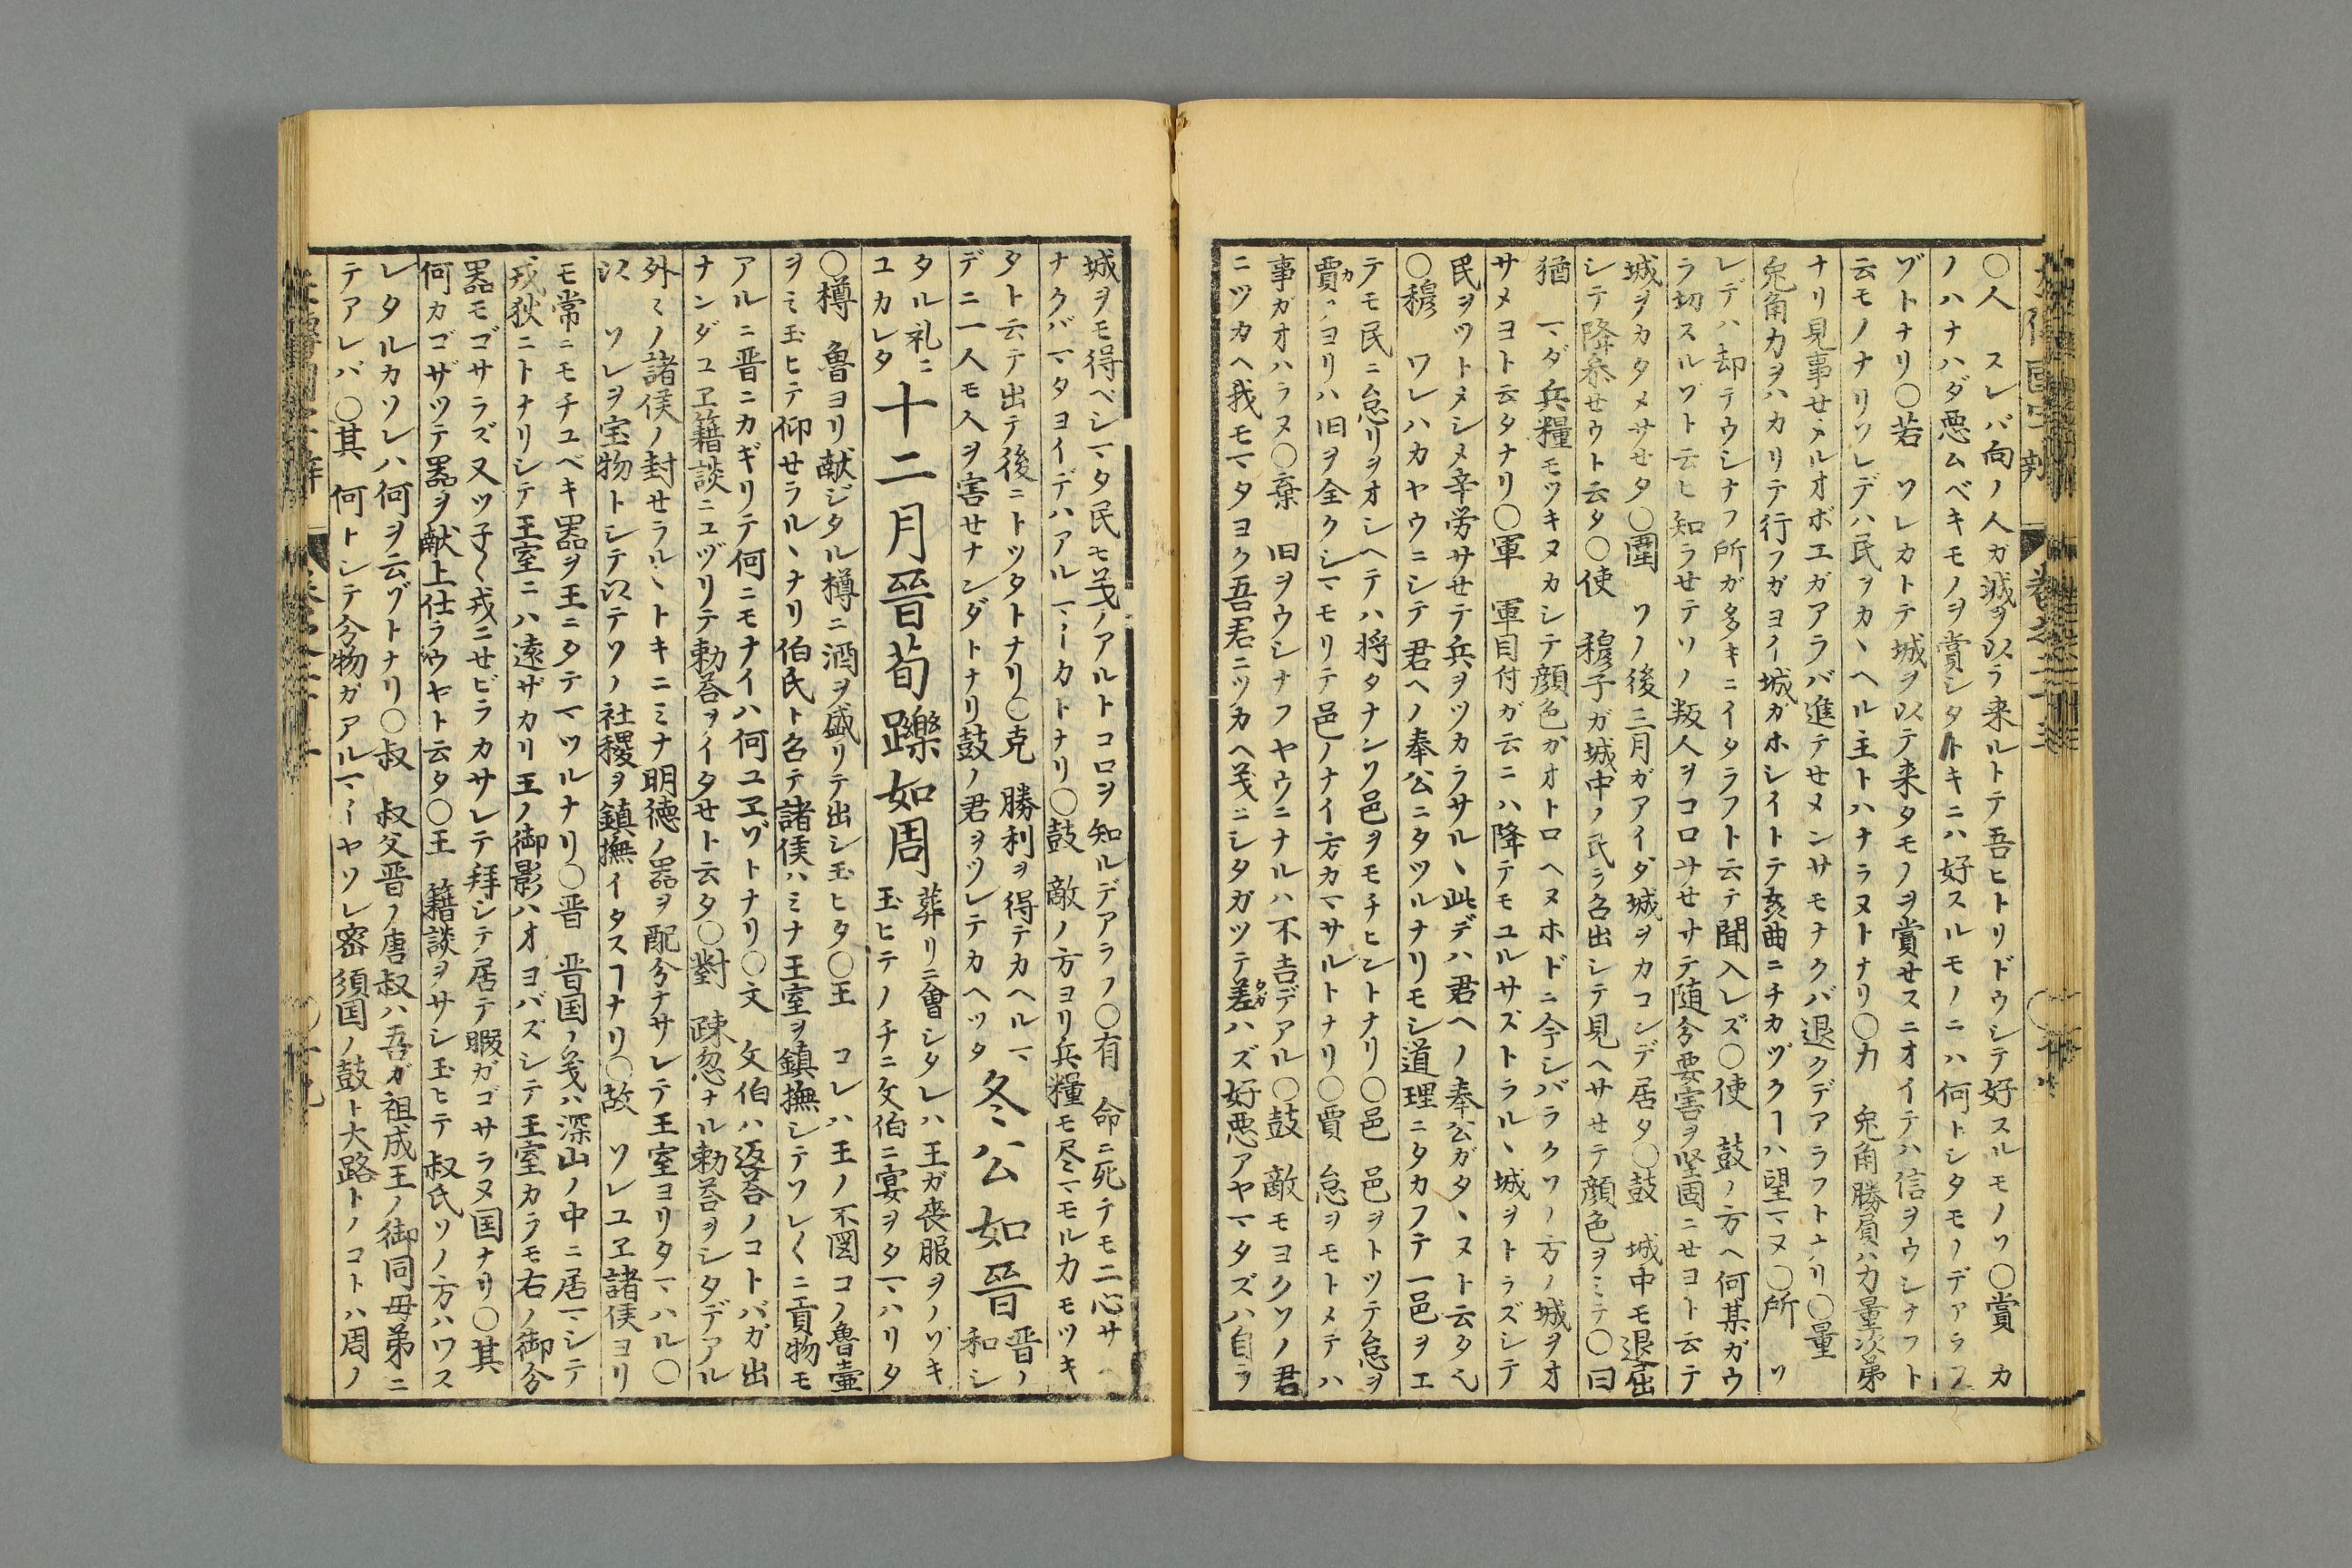 ○人　スレバ向ノ人カ城ヲ以ラ来ルトテ吾ヒトリドウシテ好スルモノソ○賞　カ
ノハナハダ悪ムベキモノヲ賞シタトキニハ好スルモノニハ何トシタモノデアラフ
ゾトナリ○若　ソレカトテ城ヲ以テ来タモノヲ賞せスニオイテハ信ヲウシナフト
云モノナリソレデハ民ヲカヽヘル主トハナラヌトナリ○力　兔角勝負ハ力量次第
ナリ見事せメルオボエガアラバ進テせメンサモナクバ退クデアラフトナリ○量
兔角力ヲハカリテ行フガヨイ城ガホシイトテ亥曲ニチカヅクヿハ望マヌ○所　ソ
レデハ却テウシナフ所ガ多キニイタラフト云テ聞入レズ○使　鼓ノ方ヘ何某ガウ
ラ切スルゾト云ヒ知ラせテソノ叛人ヲコロサせサテ随分要害ヲ堅固ニせヨト云テ
城ヲカタメサせタ○圍　ソノ後三月ガアイダ城ヲカコンデ居タ○鼓　城中モ退屈
シテ降参せウト云タ○使　穆子ガ城中ノ民ラ召出シテ見ヘサせテ顔色ヲミテ○曰
猶　マダ兵糧モツキヌカシテ顔色カオトロヘヌホドニ今シバラクソノ方ノ城ヲオ
サメヨト云タナリ○軍　軍目付ガ云ニハ降テモユルサズトラルヽ城ヲトラズシテ
民ヲツトメシメ辛労サせテ兵ヲツカラサルヽ此デハ君ヘノ奉公ガタヽヌト云タ心
○穆　ワレハカヤウニシテ君ヘノ奉公ニタツルナリモシ道理ニタカフテ一邑ヲエ
テモ民ニ怠リヲオシヘテハ将タナンソ邑ヲモチヒントナリ○邑　邑ヲトツテ怠ヲ
賈フヨリハ旧ヲ全クシマモリテ邑ノナイ方カマサルトナリ○賈　怠ヲモトメテハ
事ガオハラヌ○棄　旧ヲウシナフヤウニナルハ不吉デアル○鼓　敵モヨクソノ君
ニツカヘ我モマタヨク吾君ニツカヘ義ニシタガツテ差ハズ好悪アヤマタズハ自ラ
城ヲモ得ベシマタ民モ義ノアルトコロヲ知ルデアラフ○有　命ニ死テモ二心サ
ナクバマタヨイデハアルマイカトナリ○鼓　敵ノ方ヨリ兵糧モ尽マモル力モツキ
タト云テ出テ後ニトツタトナリ○克　勝利ヲ得テカヘルマ
デニ一人モ人ヲ害せナンダトナリ鼓ノ君ヲツレテカヘツタ
冬公如晉
晋ノ
和シ
タル礼ニ
ユカレタ
十二月晉荀躒如周
葬リニ會シタレハ王ガ喪服ヲノゾキ
玉ヒテノチニ文伯ニ宴ヲタマハリタ
○樽　魯ヨリ献ジタル樽ニ酒ヲ盛リテ出シ玉ヒタ○王　コレハ王ノ不図コノ魯壷
ヲミ玉ヒテ仰せラルヽナリ伯氏ト名テ諸侯ハミナ王室ヲ鎮撫シテソレ〳〵ニ貢物モ
アルニ晋ニカギリテ何ニモナイハ何ユヱゾトナリ○文　文伯ハ返荅ノコトバガ出
ナンダユヱ籍談ニユヅリテ勅荅ヲイタせト云タ○對　疎忽ナル勅荅ヲシタデアル
外ミノ諸侯ノ封せラルヽトキニミナ明徳ノ器ヲ配分ナサレテ王室ヨリタマハル○
以　ソレヲ宝物トシテ以テソノ社稷ヲ鎮撫イタスヿナリ○故　ソレユヱ諸侯ヨリ
モ常ニモチユベキ器ヲ王ニタテマツルナリ○晋　晋国ノ義ハ深山ノ中ニ居マシテ
戎狄ニトナリシテ王室ニハ遠ザカリ王ノ御影ハオヨバズシテ王室カラモ右ノ御分
器モゴサラズ又ツ子〳〵戎ニせビラカサレテ拜シテ居テ暇ガゴサラヌ国ナリ○其
何カゴザツテ器ヲ献上仕ラウヤト云タ○王　籍談ヲサシ玉ヒテ叔氏ソノ方ハワス
レタルカソレハ何ヲ云ゾトナリ○叔　叔父晋ノ唐叔ハ吾ガ祖成王ノ御同母弟ニ
テアレバ○其　何トシテ分物ガアルマイヤソレ密須国ノ鼓ト大路トノコトハ周ノ